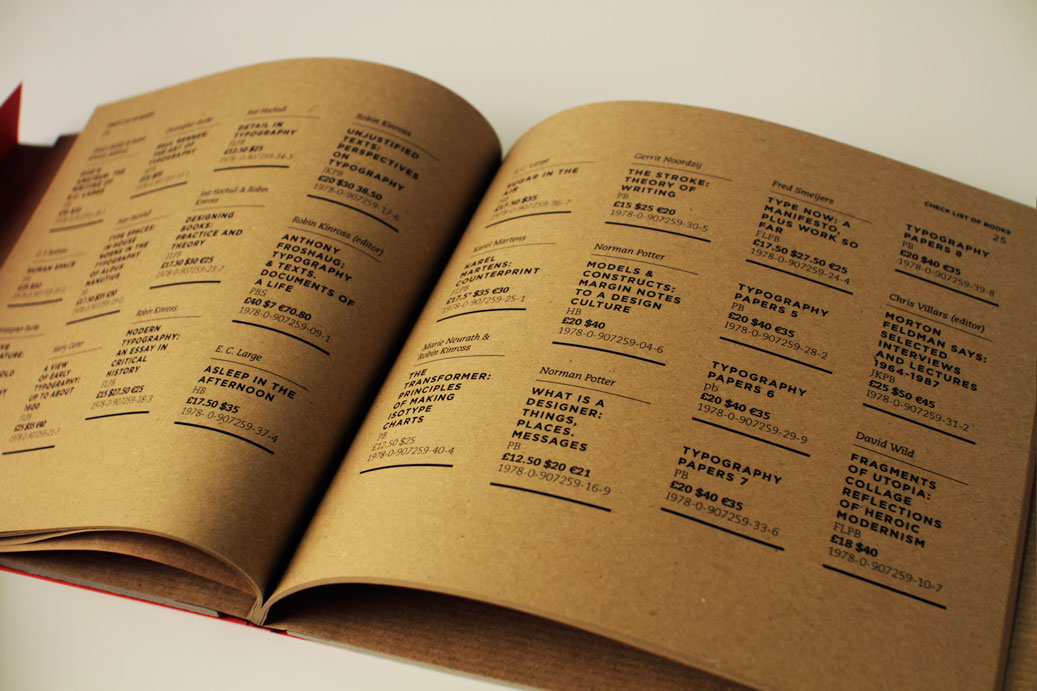 PAUL RENNER:
THE ART OF
TYPOGRAPHY
HUMAN SPACE
TYPE SPACES:
IN-HOUSE
NORMS IN THE
TYPOGRAPHY
OF ALDUS
MANUTIUS
Harry Carter
A VIEW
OF EARLY
TYPOGRAPHY:
UP TO ABOUT
1600
Jost Hochuli
DETAIL IN
TYPOGRAPHY
FLPB
£12.50 $25
Jost Hochuli & Robin
Kinross
DESIGNING
BOOKS:
PRACTICE AND
THEORY
£17.50 $30 €25
Robin Kinross
MODERN
TYPOGRAPHY:
AN ESSAY IN
CRITICAL
HISTORY
FLPB
£15 $27.50 €25
1978-0-907259-18-3
Robin Kinross
UNJUSTIFIED
TEXTS:
PERSPECTIVES
ON
TYPOGRAPHY
JKPB
£20 $30 38.50
1978-0-907259-17-6
Robin Kinross (editor)
ANTHONY
FROSHAUG:
TYPOGRAPHY
& TEXTS.
DOCUMENTS OF
A LIFE
PBS
£40 $7 €70.80
1978-0-907259-09-1
E. C. Large
ASLEEP IN THE
AFTERNOON
HB
£17.50 $35
1978- 0-907259-37-4
E. C. Large
SUGAR IN THE
AIR
1978-0-907259-36-7
Karel Martens
KAREL
MARTENS:
COUNTERPRINT
FLPB
£17.5* $35 €30
1978-0-907259-25-1
Marie Neurath &
Robin Kinross
THE
TRANSFORMER:
PRINCIPLES
OF MAKING
ISOTYPE
CHARTS
PB
£12.50 $25
1978-0-907259-40-4
Gerrit Noordzij
THE STROKE:
THEORY OF
WRITING
PB
£15 $25 €20
1978-0-907259-30-5
Norman Potter
MODELS &
CONSTRUCTS:
MARGIN NOTES
TO A DESIGN
CULTURE
HB
£20 $40
1978-0-907259-04-6
Norman Potter
WHAT IS A
DESIGNER:
THINGS,
PLACES.
MESSAGES
PB
£12.50 $20 €21
1978-0-907259-16-9
Fred Smeijers
TYPE NOW: A
MANIFESTO,
PLUS WORK SO
FAR
FLPB
£17.50 $27.50 €25
1978-0-907259-24-4
TYPOGRAPHY
PAPERS 5
PB
£20 $40 €35
1978-0-907259-28-2
TYPOGRAPHY
PAPERS 6
pb
£20 $40 €35
1978-0-907259-29-9
TYPOGRAPHY
PAPERS 7
PB
£20 $40 €35
1978-0-907259-33-6
CHECK LIST OF BOOKS
25
TYPOGRAPHY
PAPERS 8
PB
£20 $40 €35
1978-0-907259-39-8
Chris Villars (editor)
MORTON
FELDMAN SAYS:
SELECTED
INTERVIEWS
AND LECTURES
1964-1987
JKPB
£25 $50 €45
1978-0-907259-31-2
David Wild
FRAGMENTS
OF UTOPIA:
COLLAGE
REFLECTIONS
OF HEROIC
MODERNISM
FLPB
£18 $40
1978-0-907259-10-7